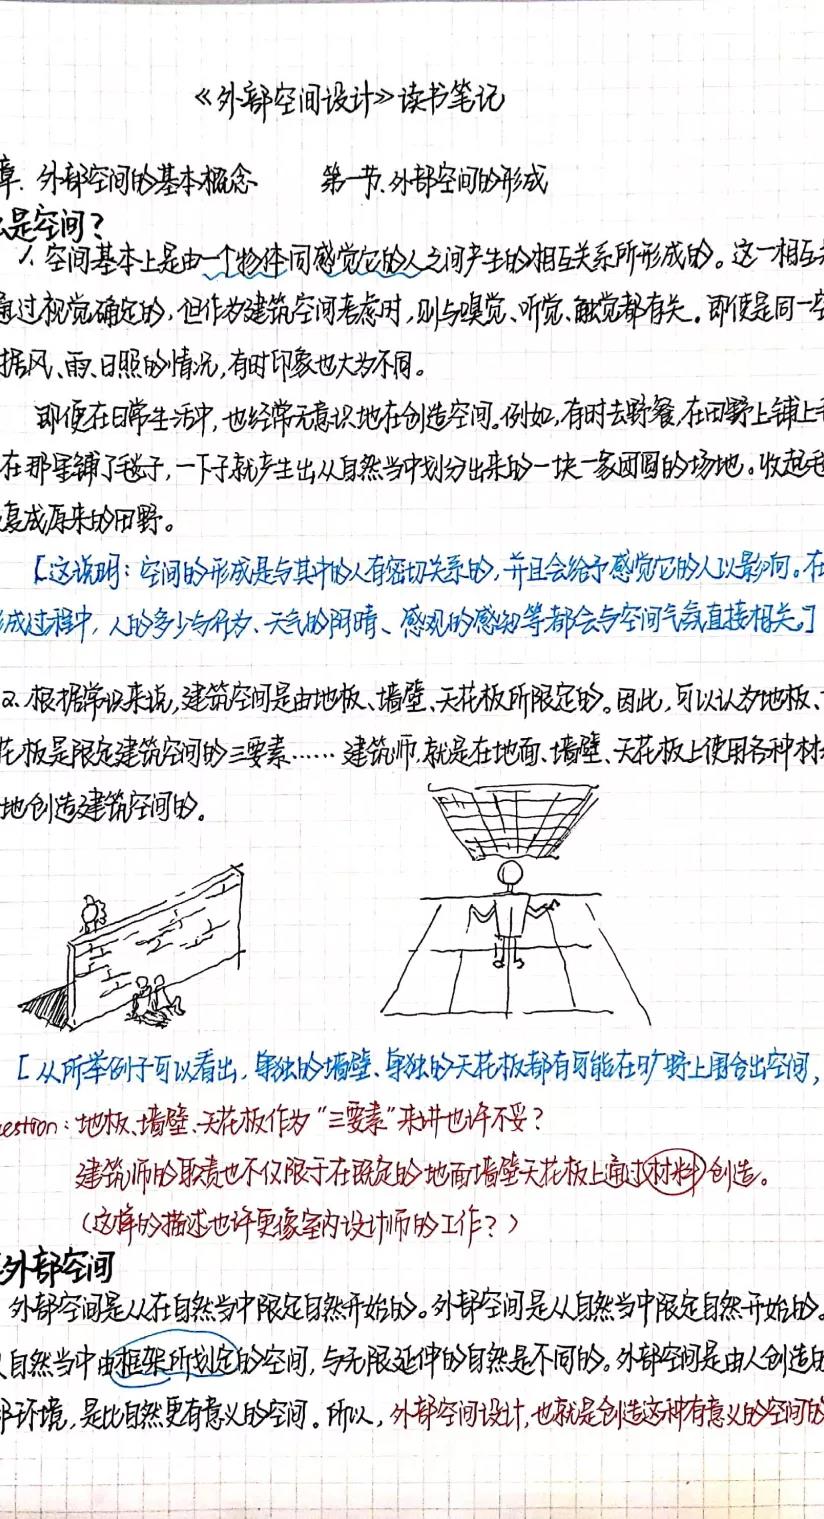 《外部空间设计》读书笔记
章. 外部空间的基本概念 第一节.外部空间的形成
么是空间?
1. 空间基本上是由一个物体同感觉它的人之间产生的相互关系所形成的。这一相互关
通过视觉确定的,但作为建筑空间考虑时,则与嗅觉、听觉、触觉都有关。即使是同一空
据风、雨、日照的情况,有时印象也大为不同。
即便在日常生活中,也经常无意识地在创造空间。例如,有时去野餐,在田野上铺上毛
在那里铺了毯子,一下子就产生出从自然当中划分出来的一块一家团圆的场地。收起毛
复成原来的田野。
【这说明:空间的形成是与其中的人有密切关系的,并且会给予感觉它的人以影响。在
形成过程中,人的多少与行为、天气的阴晴、感观的感知等都会与空间气氛直接相关。】
2. 根据常识来说,建筑空间是由地板、墙壁、天花板所限定的。因此,可以认为地板、
花板是限定建筑空间的三要素……建筑师,就是在地面、墙壁、天花板上使用各种材
地创造建筑空间的。
[从所举例子可以看出,单独的墙壁、单独的天花板都有可能在旷野上围合出空间,
uestion:地板、墙壁、天花板作为“三要素”来讲也许不妥?
建筑师的职责也不仅限于在既定的地面墙壁天花板上通过材料创造。
(这样的描述也许更像室内设计师的工作?)
外部空间
外部空间是从在自然当中限定自然开始的。外部空间是从自然当中限定自然开始的。
自然当中由框架所划定的空间,与无限延伸的自然是不同的。外部空间是由人创造的
部环境,是比自然更有意义的空间。所以,外部空间设计,也就是创造这种有意义的空间的